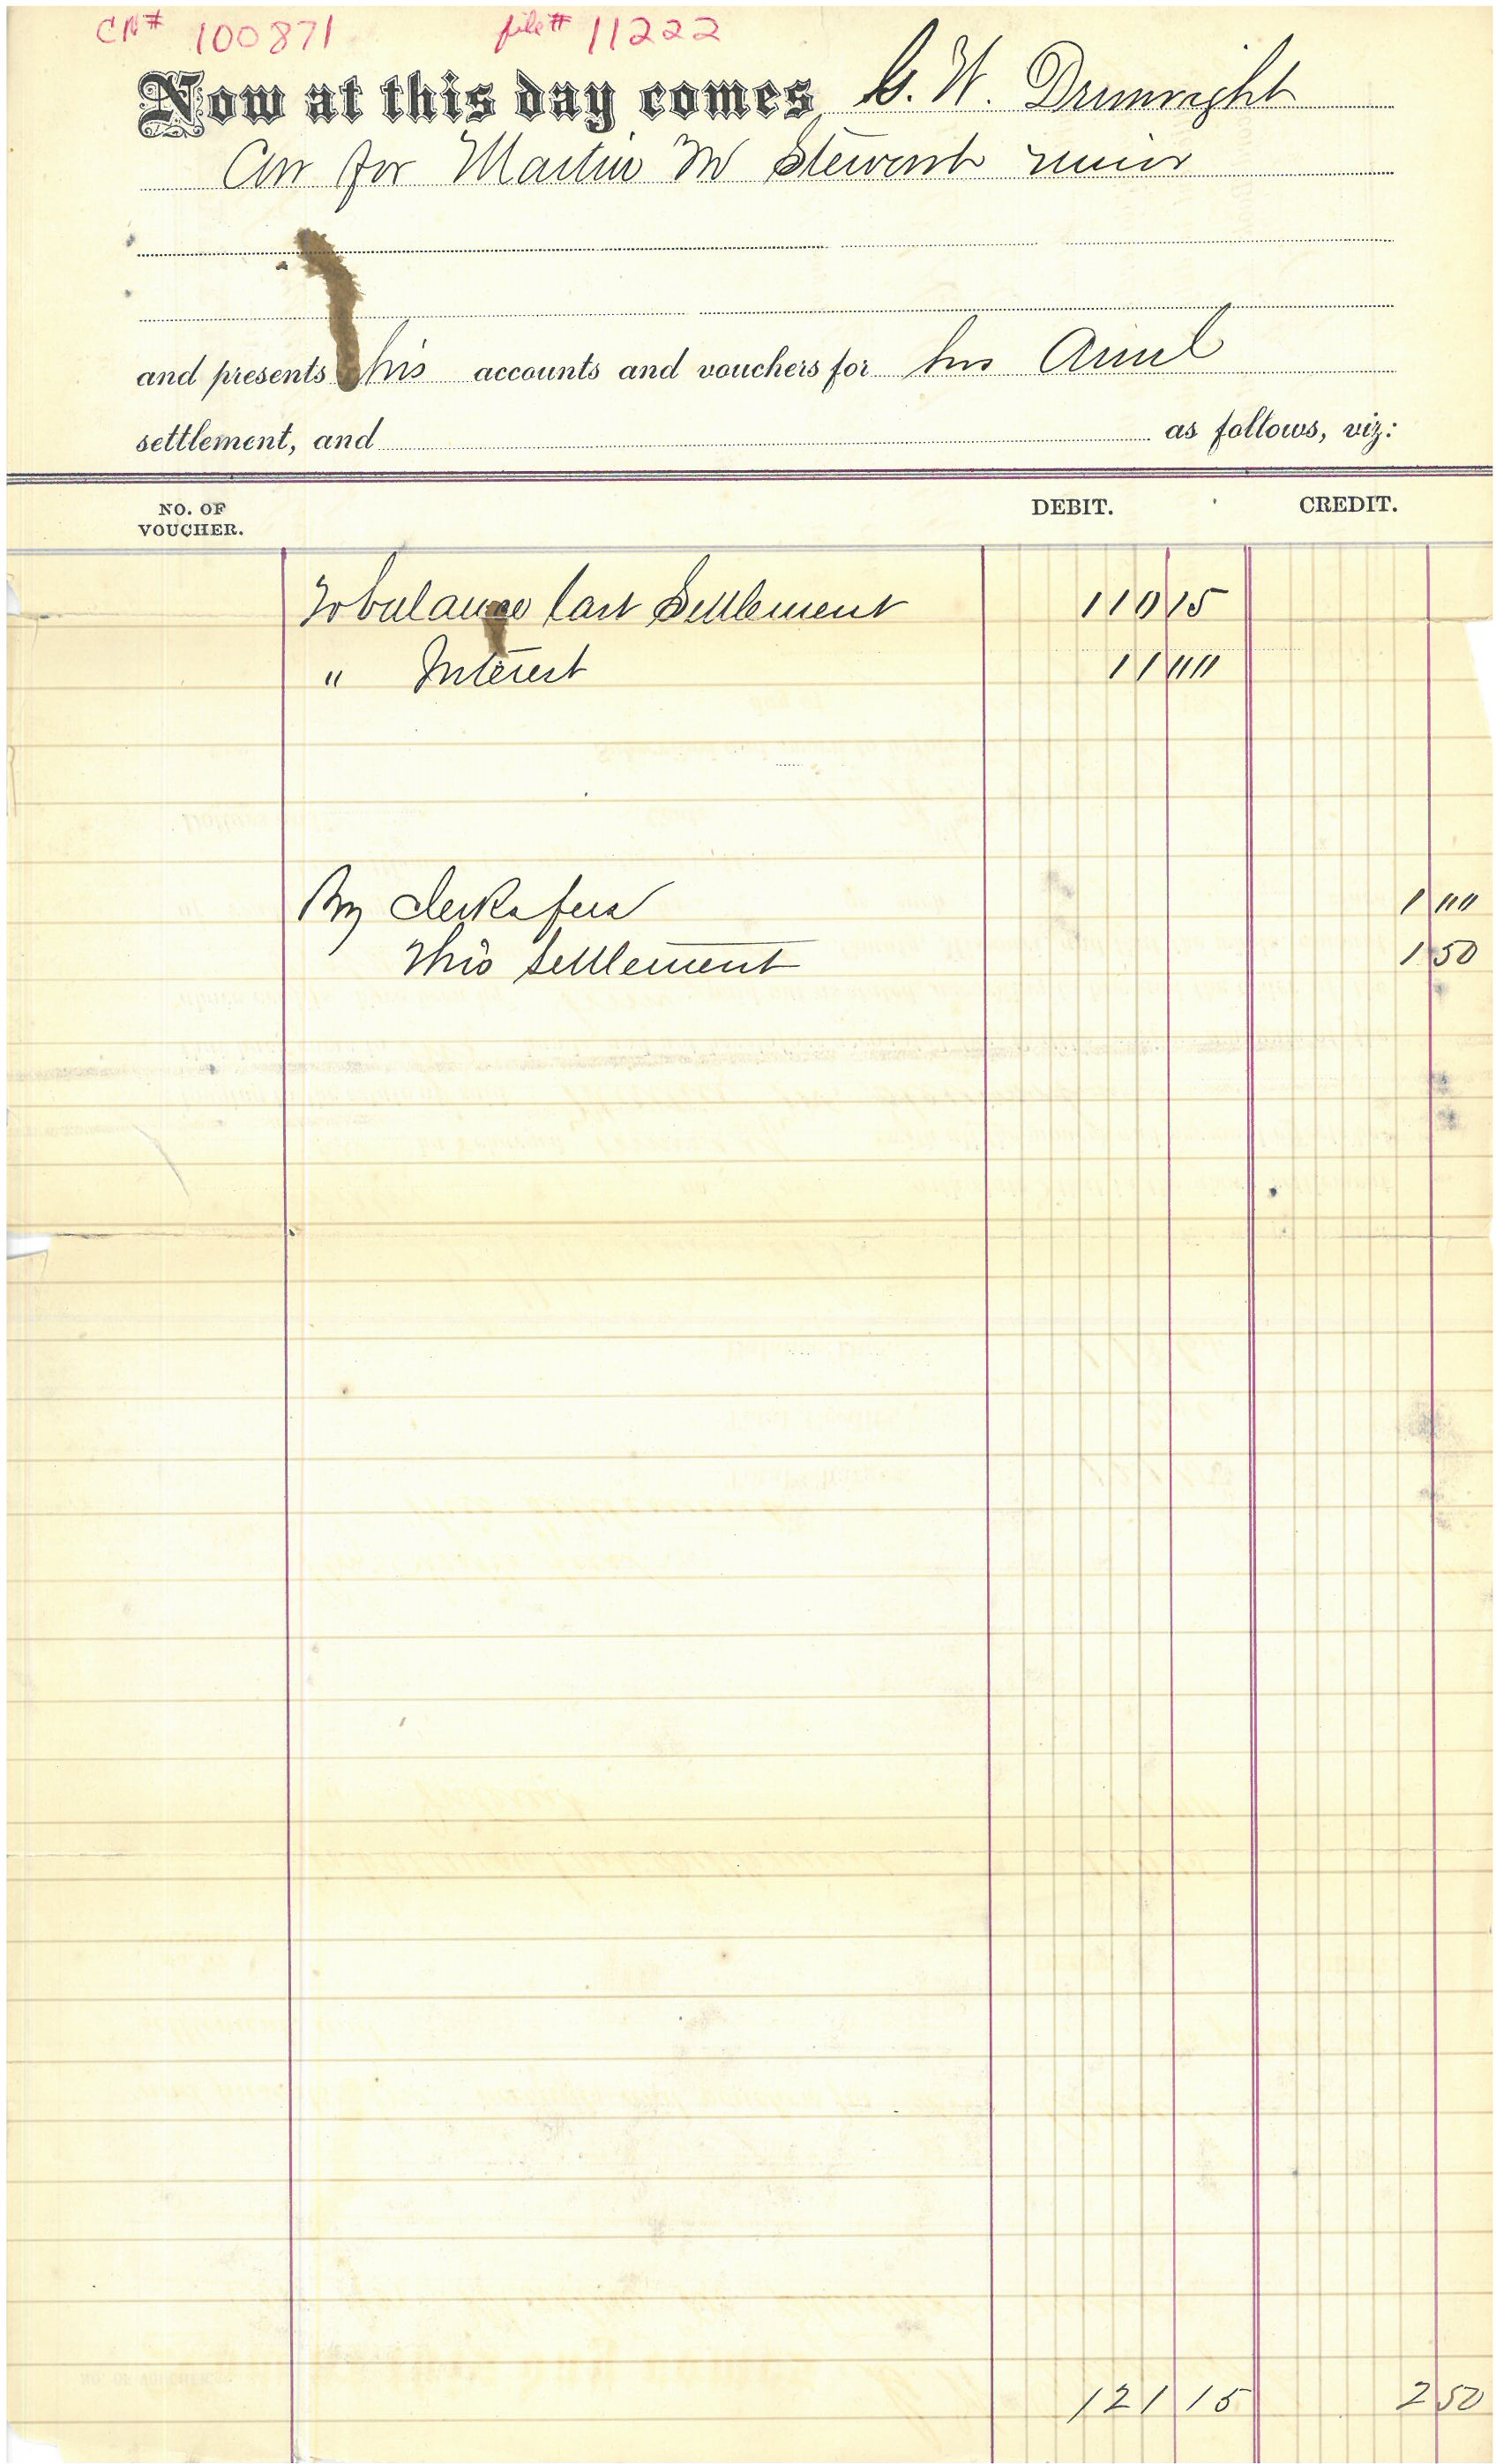 CN# 100871 file# 11222
Now at this day comes G. W. Drumright
Cur for Martin M Stewart minor
and presents his accounts and vouchers for his Annl
settlement, and as follows, viz:
NO. OF VOUCHER. DEBIT. CREDIT.
To balance last Settlement 110 15
" Interest 11 00
By Clerks fees 1 00
This Settlement 1 50
121 15 2 50